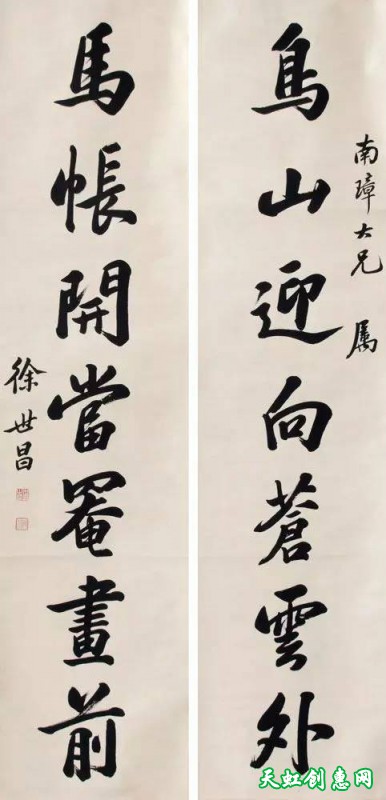 鳥山迎向蒼雲外
南璋大兄属
馬帳開當罨畫前
徐世昌
天虹创惠网